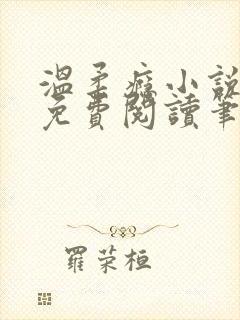 溫柔癮小說
免費閱讀筆
羅荣桓